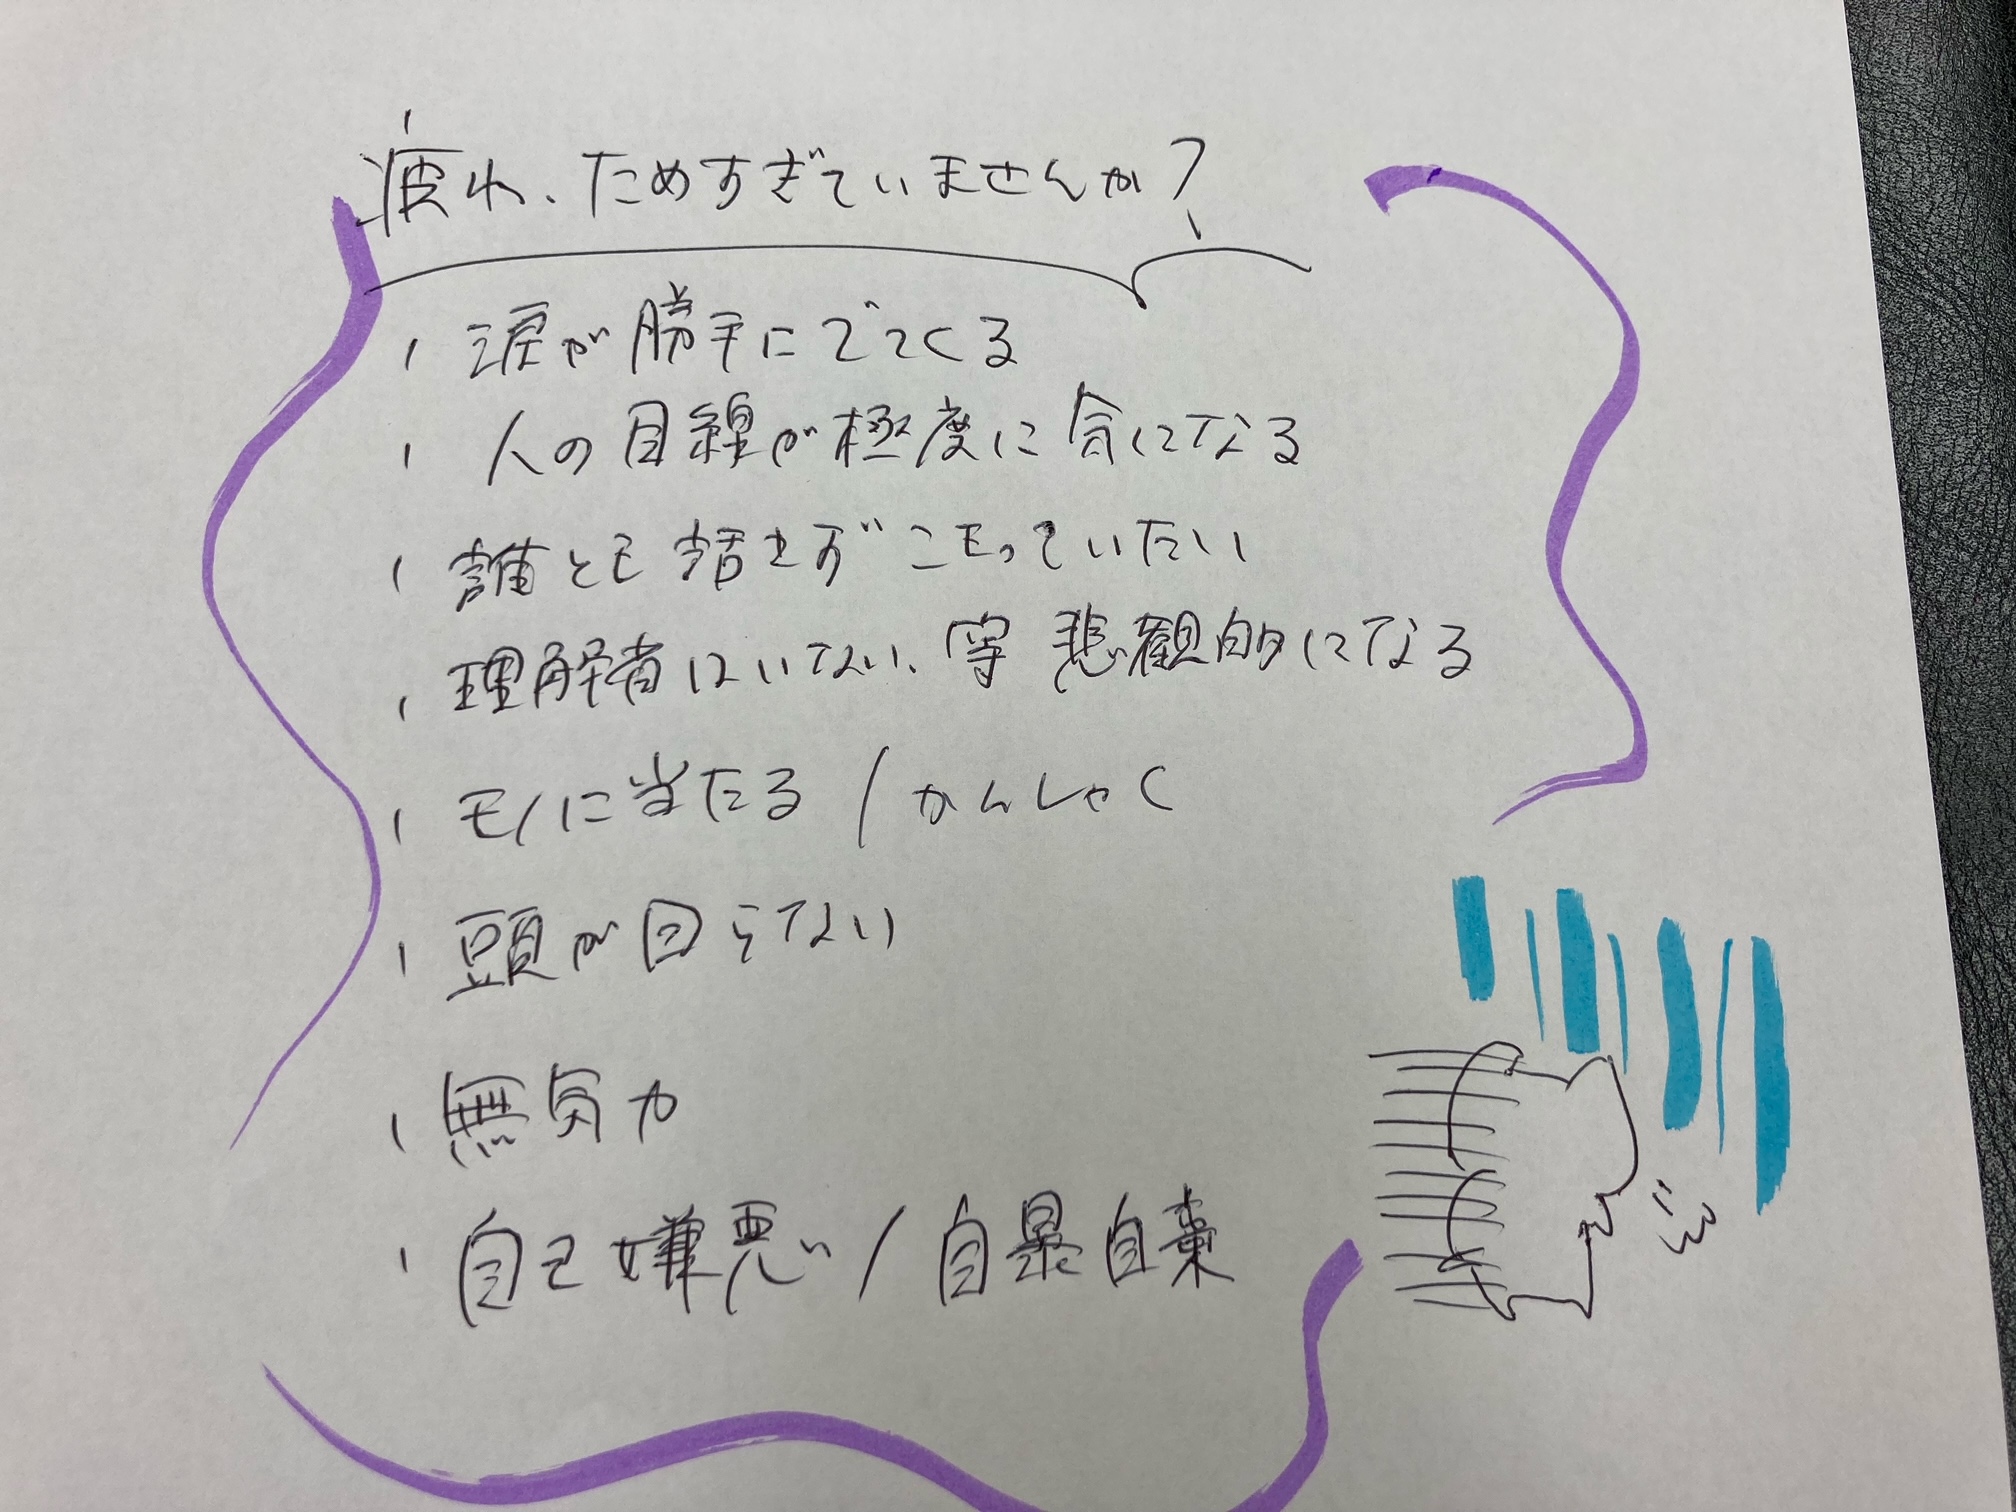 疲れ、ためすぎていませんか?
・涙が勝手にでてくる
・人の目線が極度に気になる
・誰とも話さずこもっていたい
・理解者はいない、等 悲観的になる
・モノに当たる / かんしゃく
・頭が回らない
・無気力
・自己嫌悪 / 自暴自棄